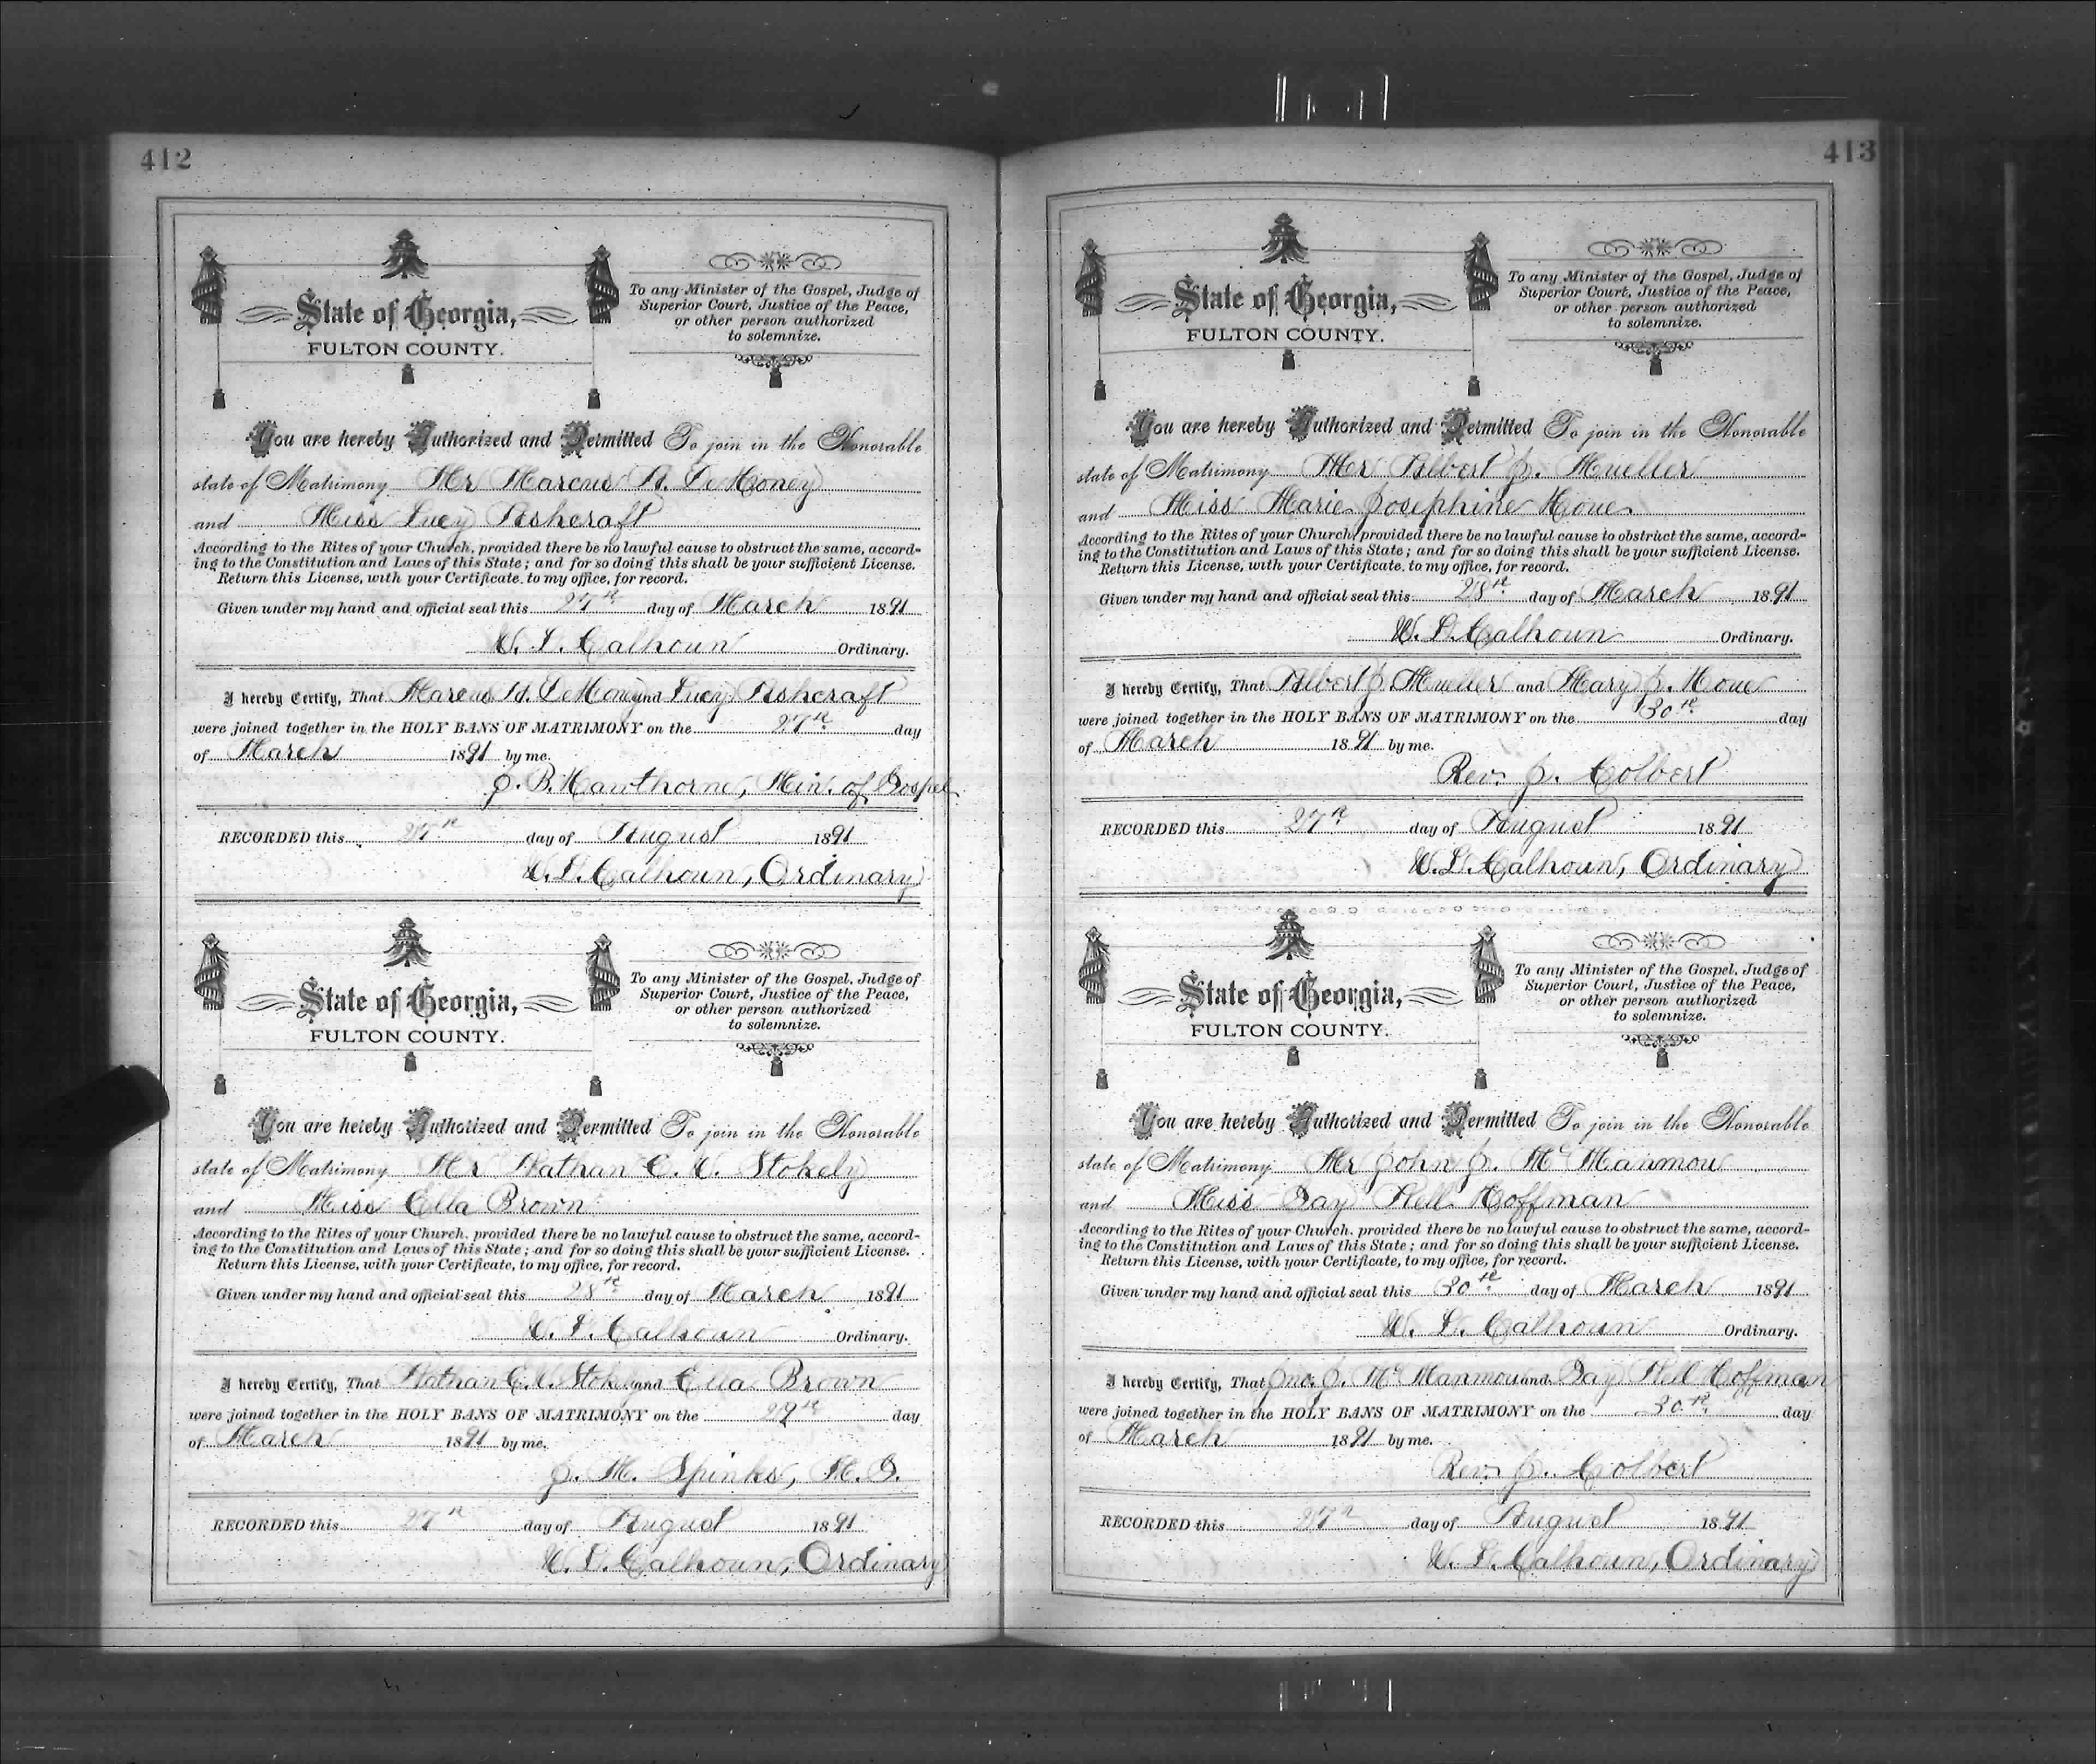 412
State of Georgia,
FULTON COUNTY.
To any Minister of the Gospel, Judge of
Superior Court, Justice of the Peace,
or other person authorized
to solemnize.
You are hereby Authorized and Permitted To join in the Honorable
state of Matrimony Mr Marcus A. DeMoney
and Miss Lucy Ashcraft
According to the Rites of your Church, provided there be no lawful cause to obstruct the same, accord-
ing to the Constitution and Laws of this State; and for so doing this shall be your sufficient License.
Return this License, with your Certificate, to my office, for record.
Given under my hand and official seal this 27th day of March 1891
W. L. Calhoun Ordinary.
I hereby Certify, That Marcus DeMoney and Lucy Ashcraft
were joined together in the HOLY BANS OF MATRIMONY on the 27th day
of March 1891 by me.
J. B. Hawthorne, Min. of Gospel
RECORDED this 27th day of August 1891
W. L. Calhoun, Ordinary
State of Georgia,
FULTON COUNTY.
To any Minister of the Gospel, Judge of
Superior Court, Justice of the Peace,
or other person authorized
to solemnize.
You are hereby Authorized and Permitted To join in the Honorable
state of Matrimony Mr Nathan C. Stokely
and Miss Ella Brown
According to the Rites of your Church, provided there be no lawful cause to obstruct the same, accord-
ing to the Constitution and Laws of this State; and for so doing this shall be your sufficient License.
Return this License, with your Certificate, to my office, for record.
Given under my hand and official seal this 28th day of March 1891
W. L. Calhoun Ordinary.
I hereby Certify, That Nathan Stokely and Ella Brown
were joined together in the HOLY BANS OF MATRIMONY on the 29th day
of March 1891 by me.
J. M. Spinks, M. G.
RECORDED this 27th day of August 1891
W. L. Calhoun, Ordinary
413
State of Georgia,
FULTON COUNTY.
To any Minister of the Gospel, Judge of
Superior Court, Justice of the Peace,
or other person authorized
to solemnize.
You are hereby Authorized and Permitted To join in the Honorable
state of Matrimony Mr Albert J. Mueller
and Miss Marie Josephine Houe
According to the Rites of your Church, provided there be no lawful cause to obstruct the same, accord-
ing to the Constitution and Laws of this State; and for so doing this shall be your sufficient License.
Return this License, with your Certificate, to my office, for record.
Given under my hand and official seal this 28th day of March 1891
W. L. Calhoun Ordinary.
I hereby Certify, That Albert J. Mueller and Mary J. Houe
were joined together in the HOLY BANS OF MATRIMONY on the 30th day
of March 1891 by me.
Rev. J. Colbert
RECORDED this 27th day of August 1891
W. L. Calhoun, Ordinary
State of Georgia,
FULTON COUNTY.
To any Minister of the Gospel, Judge of
Superior Court, Justice of the Peace,
or other person authorized
to solemnize.
You are hereby Authorized and Permitted To join in the Honorable
state of Matrimony Mr John J. McManmou
and Miss Day Nell Hoffman
According to the Rites of your Church, provided there be no lawful cause to obstruct the same, accord-
ing to the Constitution and Laws of this State; and for so doing this shall be your sufficient License.
Return this License, with your Certificate, to my office, for record.
Given under my hand and official seal this 30th day of March 1891
W. L. Calhoun Ordinary.
I hereby Certify, That Jno. J. McManmou and Day Nell Hoffman
were joined together in the HOLY BANS OF MATRIMONY on the 30th day
of March 1891 by me.
Rev. J. Colbert
RECORDED this 27th day of August 1891
W. L. Calhoun, Ordinary